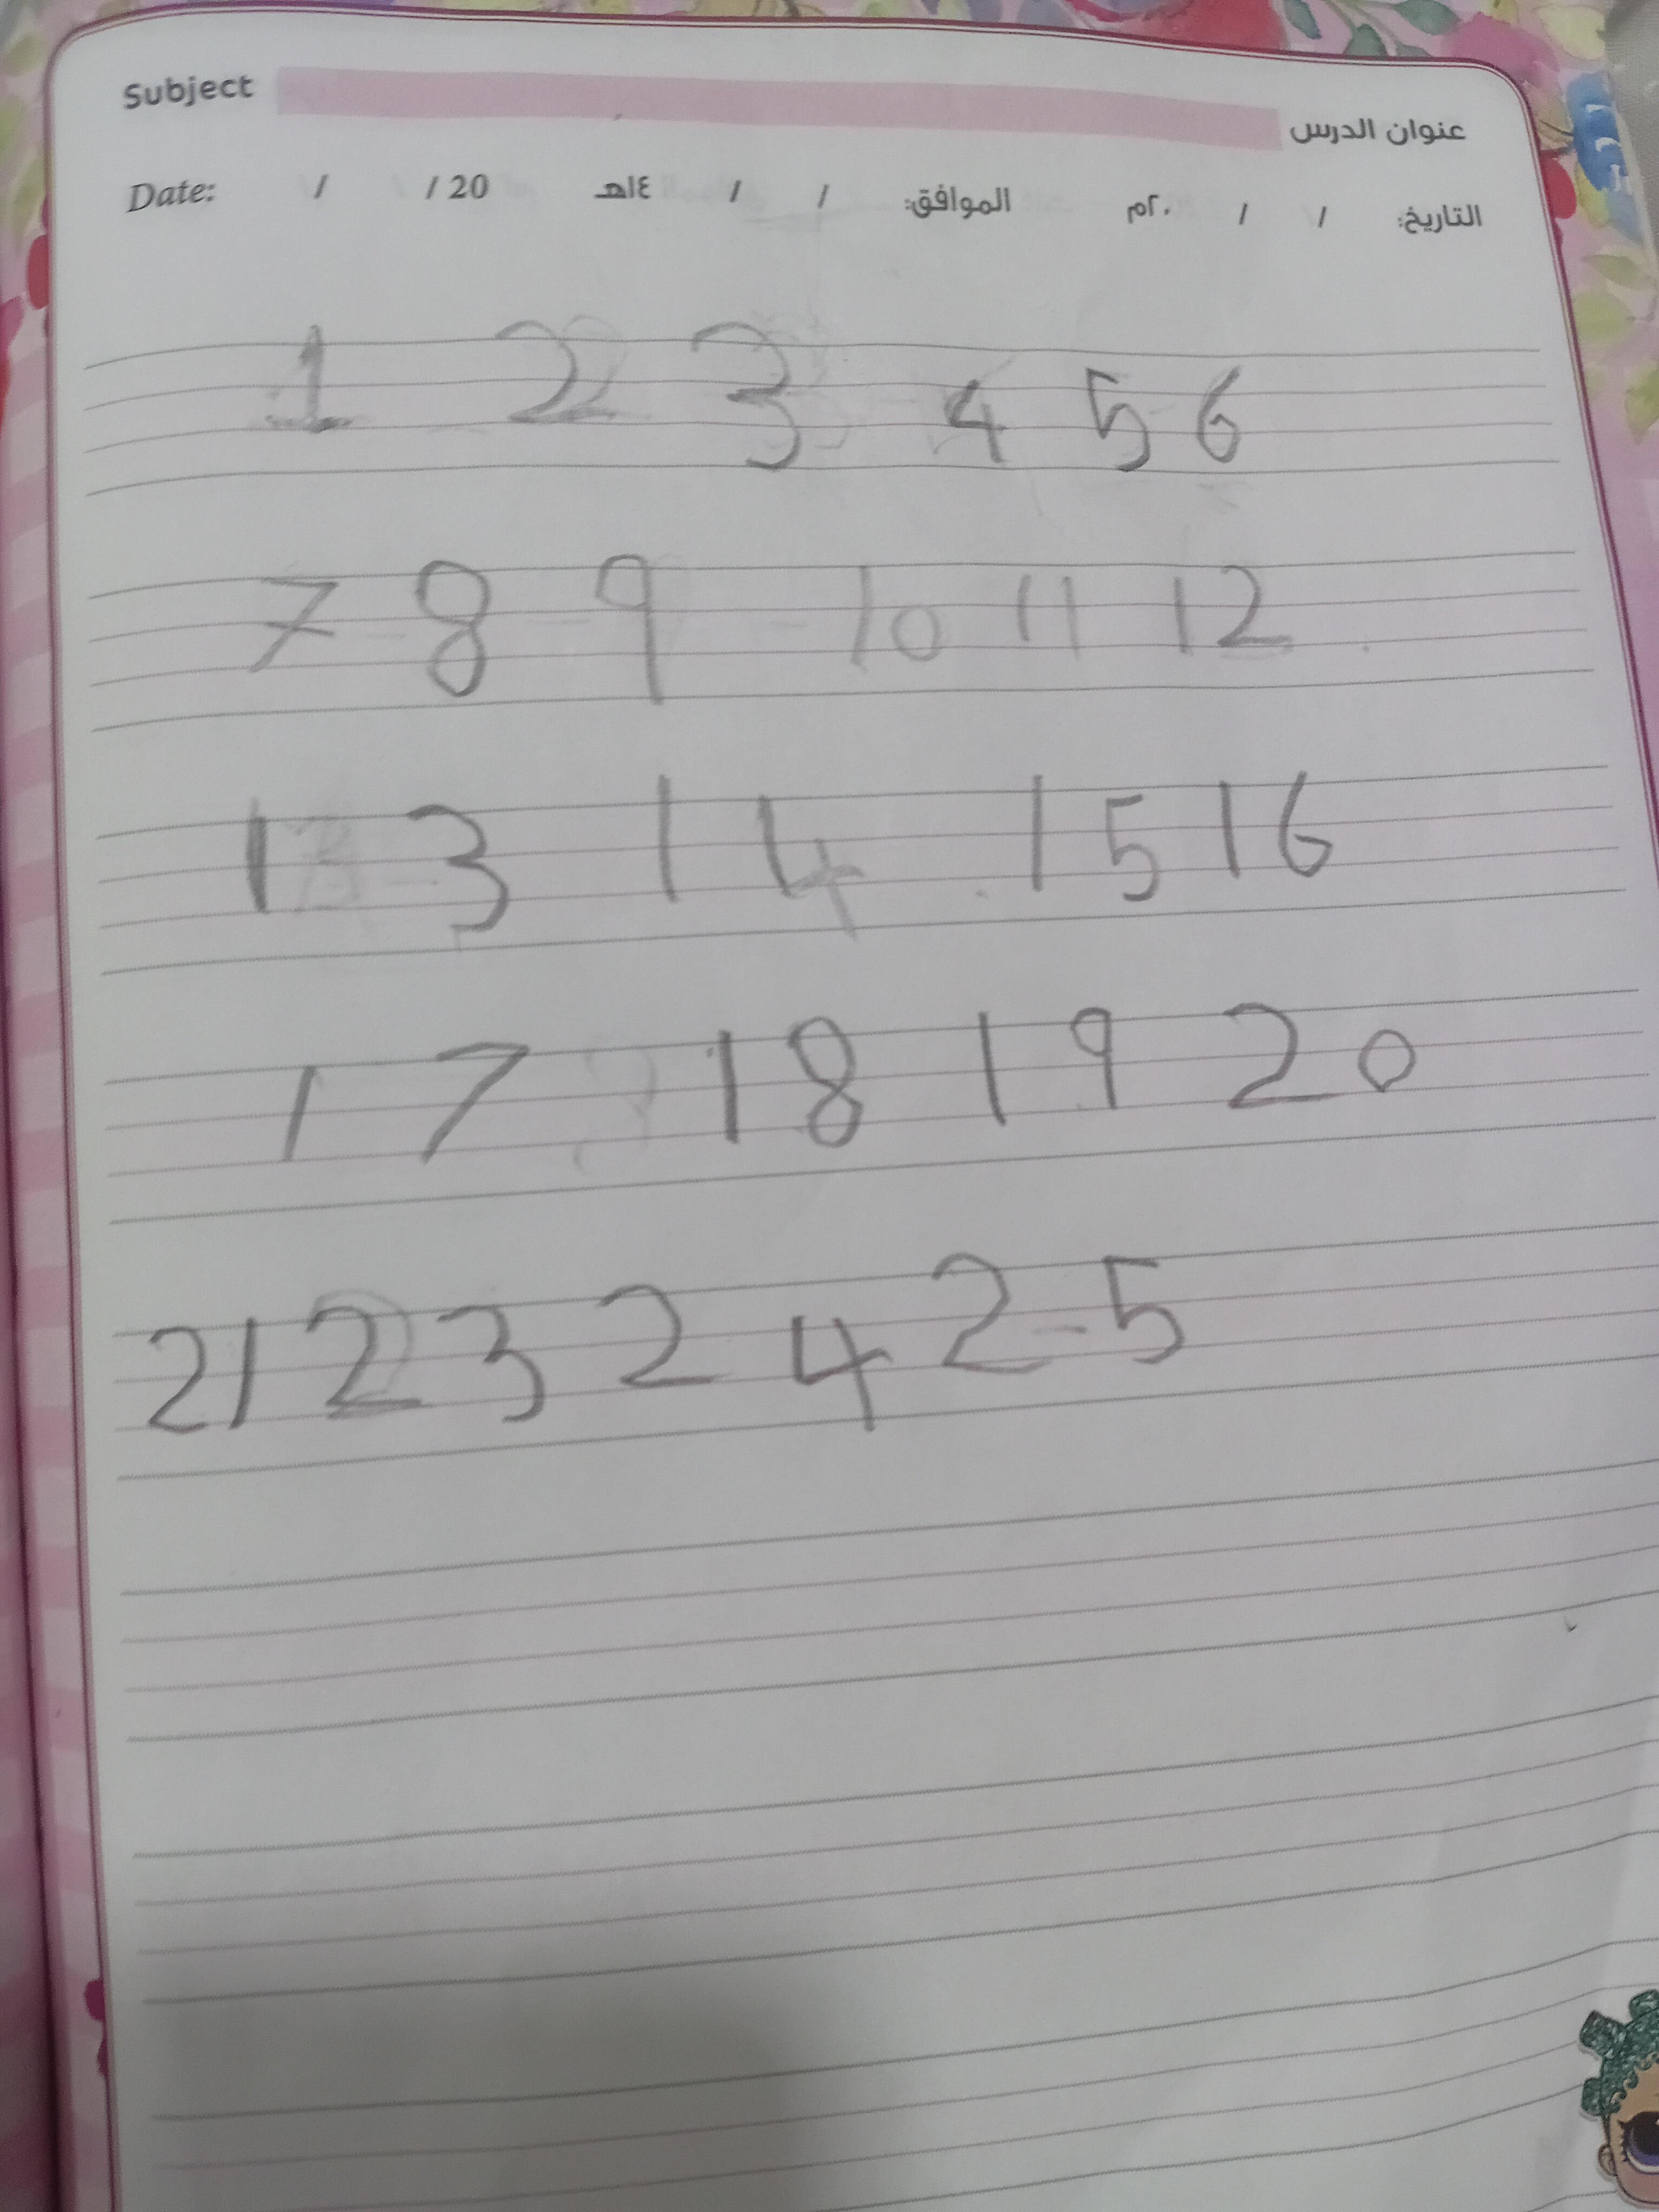 Subject عنوان الدرس
Date: / / 20 التاريخ: / / ٢٠م الموافق: / / ١٤هـ
1 2 3 4 5 6
7 8 9 10 11 12
13 14 15 16
17 18 19 20
21 23 24 2-5